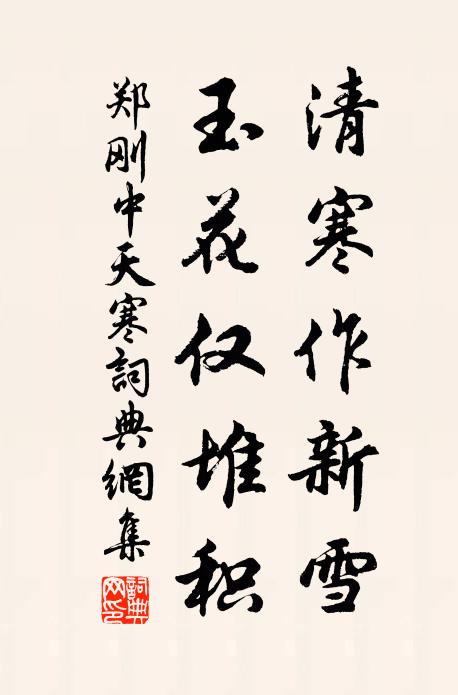 清寒作新雪
玉花仅堆积
郑刚中天寒詞典網集
詞典网印